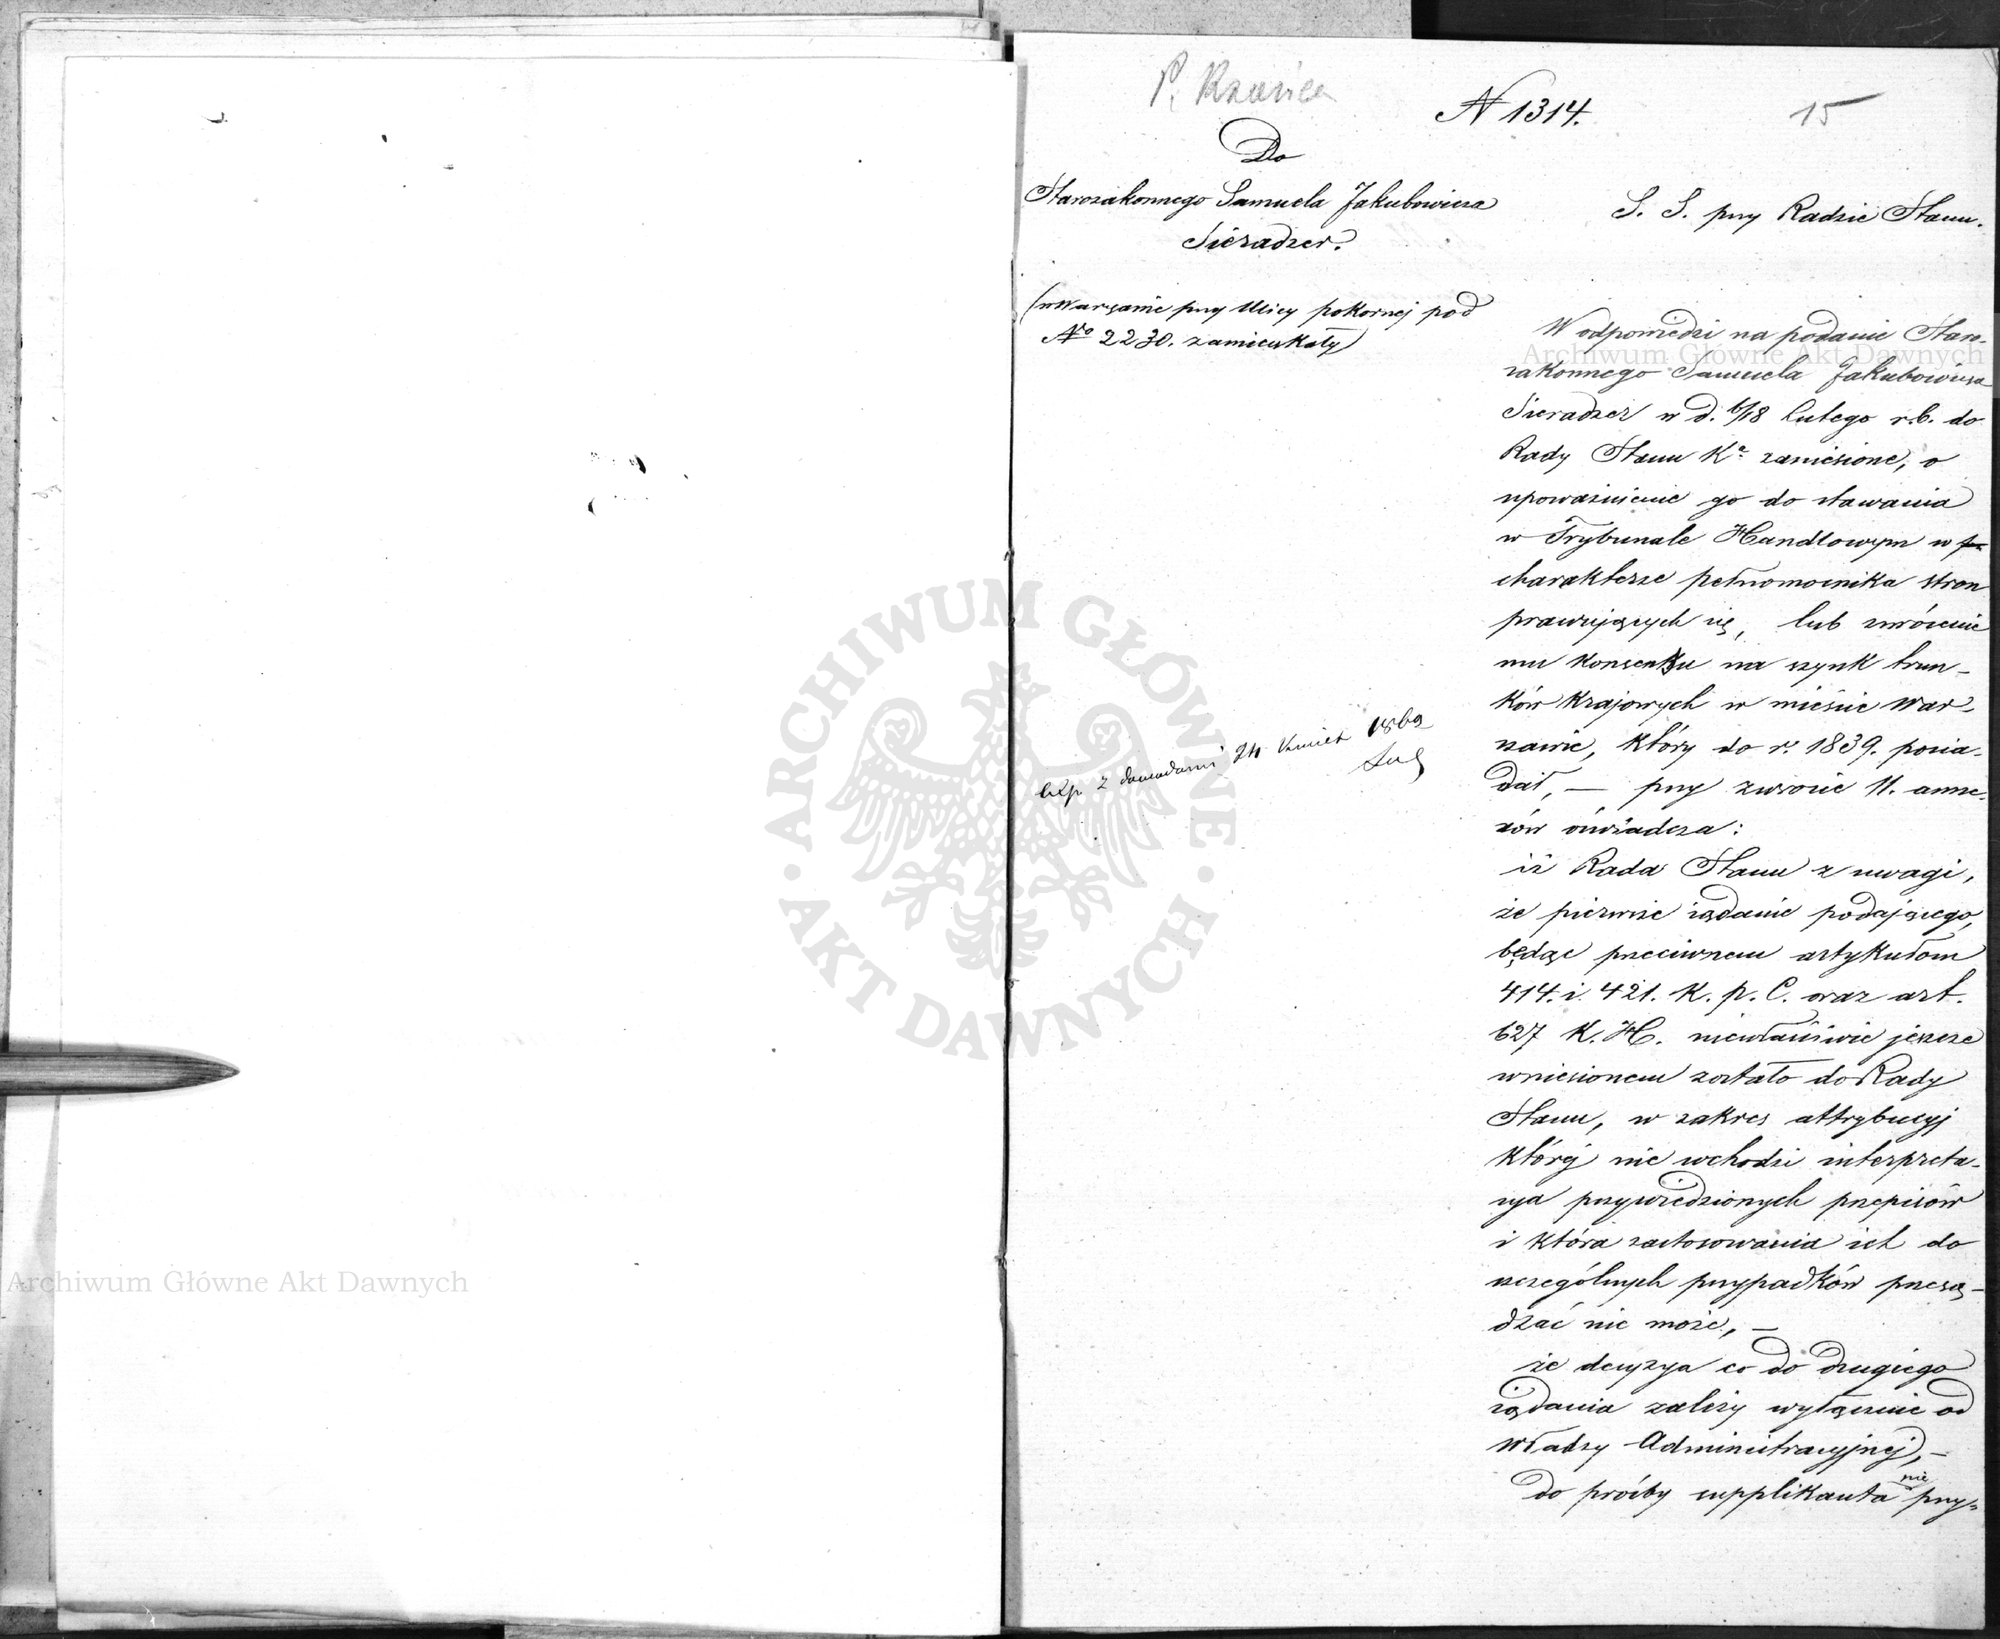 P.
N 1314.
15
Do
Starozakonnego Samuela Jakubowicza
Sieradzer.
(w Warszawie przy Ulicy pokornej pod
No 2230. zamieszkały)
S. S. przy Radzie Stanu.
W odpowiedzi na podanie Staro-
zakonnego Samuela Jakubowicza
Sieradzer w d. 6/18 Lutego r.b. do
Rady Stanu Ka zaniesione, o
upoważnienie go do stawania
w Trybunale Handlowym w
charakterze pełnomocnika stron
prawujących się, lub zwrócenie
mu Konsensu na szynk trun-
ków Krajowych w mieście War-
szawie, który do r. 1839. posia-
dał, — przy zwrocie 11. anne-
xów oświadcza:
iż Rada Stanu z uwagi,
że pierwsze żądanie podającego,
będąc przeciwnem artykułom
414. i 421. K. p. C. oraz art.
627 K. H. niewłaściwie jeszcze
wniesionem zostało do Rady
Stanu, w zakres attrybucyj
której nie wchodzi interpreta-
cya przywiedzionych przepisów
i która zastosowania ich do
szczególnych przypadków przesą-
dzać nie może, —
że decyzya co do drugiego
żądania zależy wyłącznie od
Władzy Administracyjnej, —
do prośby supplikanta nie przy-
Exp. z dowodami 24 Kwiet 186
Archiwum Główne Akt Dawnych
Archiwum Główne Akt Dawnych
ARCHIWUM GŁÓWNE
· AKT DAWNYCH ·